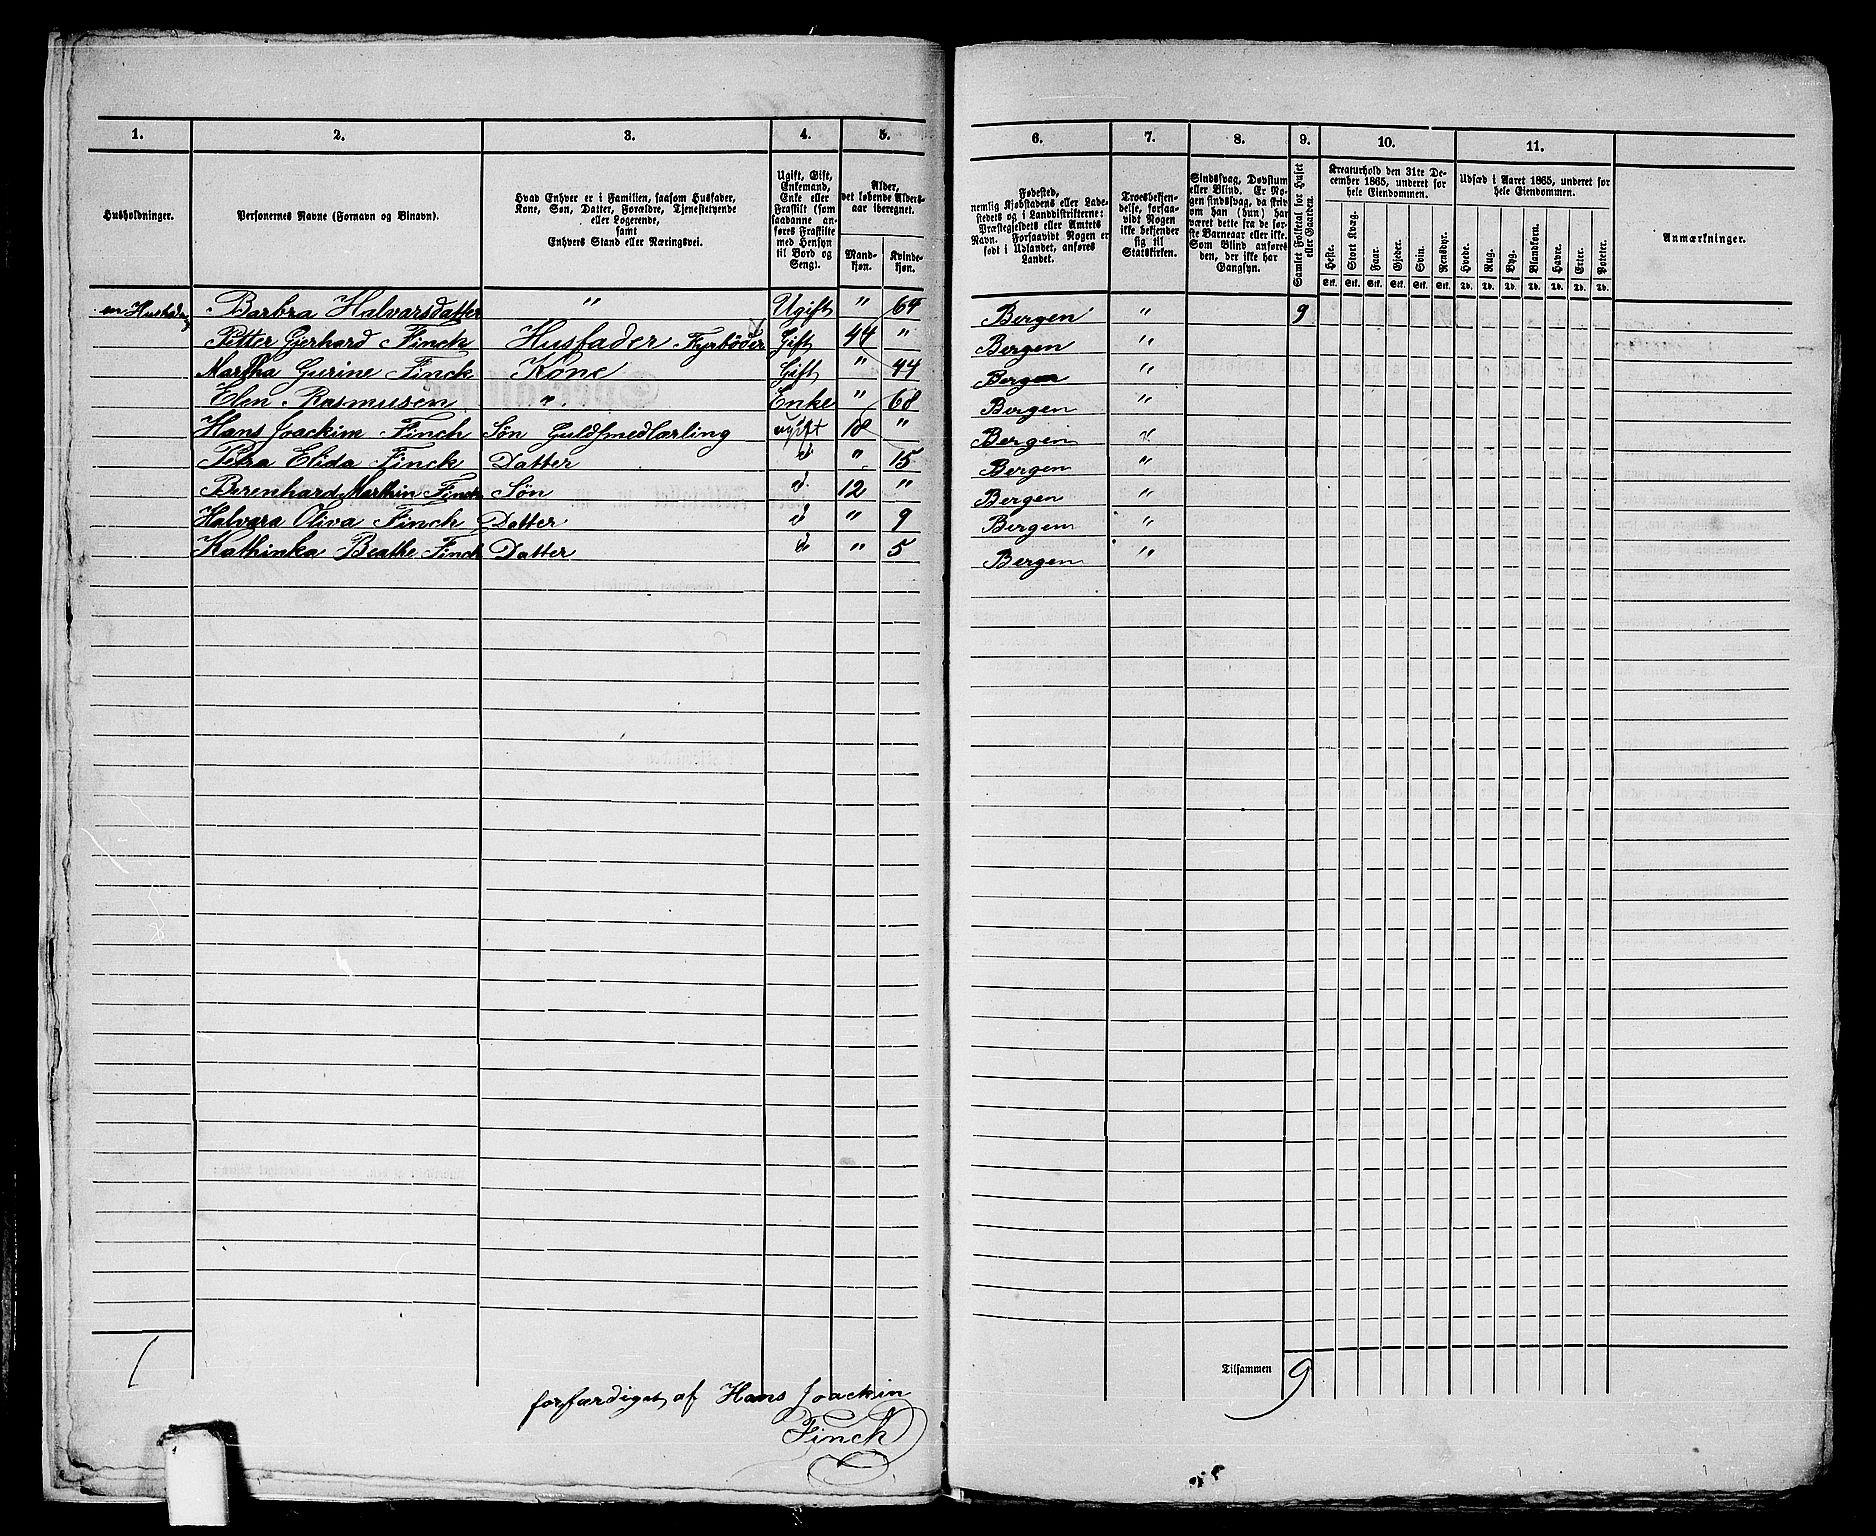 1. 2. 3. 4. 5. 6. 7. 8. 9. 10. 11.
Husholdninger.
Personernes Navne (Fornavn og Binavn).
Hvad Enhver er i Familien, saasom Husfader,
Kone, Søn, Datter, Forældre, Tjenestetyende
eller Logerende,
samt
Enhvers Stand eller Næringsvei.
Ugift, Gift,
Enkemand,
Enke eller
Fraskilt (som
saadanne an-
føres Fraskilte
med Hensyn
til Bord og
Seng).
Alder,
det løbende Alders-
aar iberegnet.
Mand-
kjøn.
Kvinde-
kjøn.
Fødested,
nemlig Kjøbstadens eller Lade-
stedets og i Landdistrikterne:
Præstegjeldets eller Amtets
Navn. Forsaavidt Nogen er
født i Udlandet, anføres
Landet.
Troesbekjen-
delse, forsaa-
vidt Nogen
ikke bekjender
sig til
Statskirken.
Sindssvag, Døvstum
eller Blind. Er No-
gen sindssvag, da skriv
om han (hun) har
været dette fra de før-
ste Barneaar eller ikke.
Som Blind anføres
den, der ikke har
Gangsyn.
Samlet Folketal for Huset
eller Gaarden.
Kreaturhold den 31te De-
cember 1865, underet for
hele Eiendommen.
Heste. Stort Kvæg. Faar. Gjeder. Svin. Rensdyr.
Stk. Stk. Stk. Stk. Stk. Stk.
Udsæd i Aaret 1865, underet for
hele Eiendommen.
Hvede. Rug. Byg. Blandkorn. Havre. Erter. Poteter.
Td. Td. Td. Td. Td. Td. Td.
Anmærkninger.
en Barbra Halvarsdatter " Ugift " 64 Bergen " 9
Petter Gjerhard Finch Husfader Fyrbøder Gift 44 " Bergen "
Martha Gurine Finck Kone Gift " 44 Bergen "
Elen Rasmusen " Enke " 68 Bergen "
Hans Joackim Finch Søn Guldsmedlærling ugift 18 " Bergen "
Petra Elida Finck Datter " " 15 Bergen "
Berenhard Marthin Finck Søn " 12 " Bergen "
Halvara Oliva Finch Datter " " 9 Bergen "
Kathinka Beathe Finch Datter " " 5 Bergen "
1
Tilsammen 9
forfærdiget af Hans Joackin
Finch